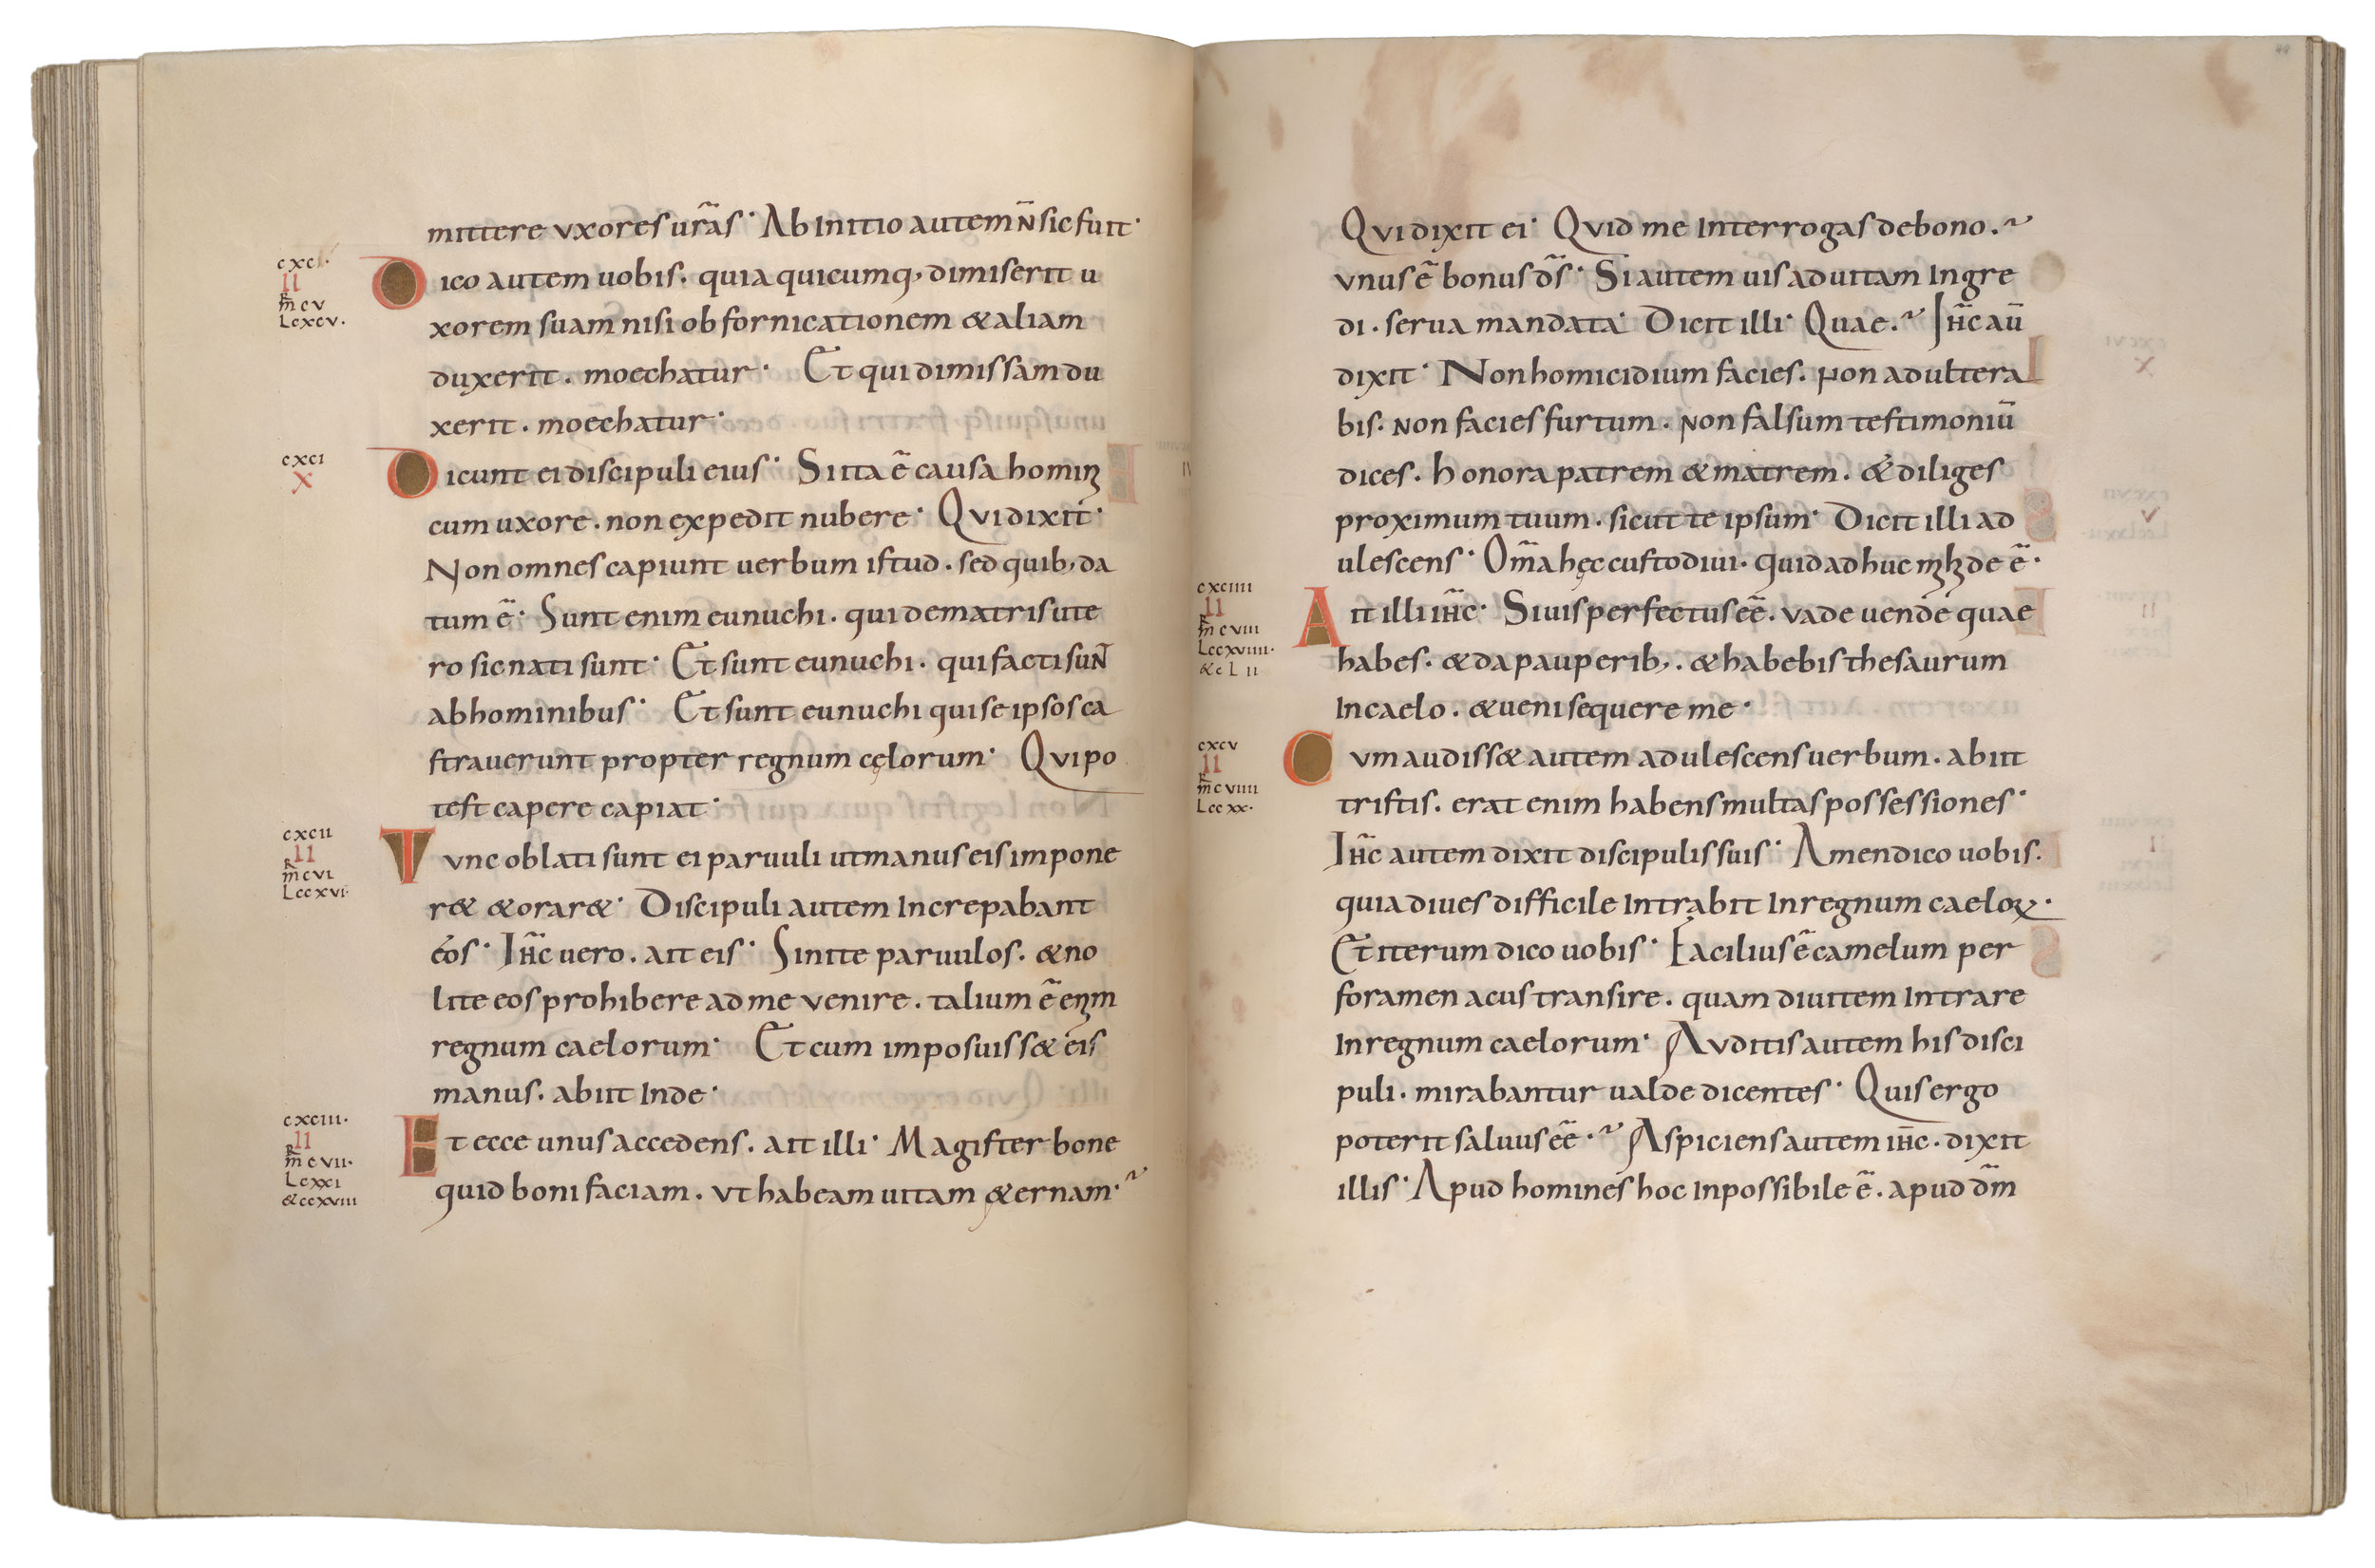 mittere uxores ur̃as · Ab Initio autem n̄ sic fuit ·
cxc ·
II
mr̄ cv
Lcxcv ·
Dico autem uobis . quia quicumq; dimiserit u
xorem suam nisi ob fornicationem & aliam
duxerit . moechatur · Et qui dimissam du
xerit . moechatur ·
cxci
X
Dicunt ei discipuli eius · Si ita ē causa homin
cum uxore . non expedit nubere · Qui dixit ·
Non omnes capiunt uerbum istud . sed quib; da
tum ē · Sunt enim eunuchi . qui de matris ute
ro sic nati sunt · Et sunt eunuchi . qui facti sun̄
ab hominibus · Et sunt eunuchi qui se ipsos ca
strauerunt propter regnum cęlorum · Qui po
test capere capiat ·
cxcii
II
mr̄ cvi
Lccxvi ·
Tunc oblati sunt ei paruuli ut manus eis impone
r& & orar& · Discipuli autem Increpabant
eos · Ih̄c uero . ait eis · Sinite paruulos . & no
lite eos prohibere ad me venire . talium ē enim
regnum caelorum · Et cum imposuiss& eis
manus . abiit Inde ·
cxciii ·
II
mr̄ cvii ·
Lcxxi
&ccxviii
Et ecce unus accedens . ait illi · Magister bone
quid boni faciam . ut habeam uitam &ernam ·
Qui dixit ei · Quid me Interrogas de bono .
unus ē bonus d̄s · Si autem uis ad uitam Ingre
di . serua mandata · Dicit illi · Quae . Ih̄c aū
dixit · Non homicidium facies . Non adultera
bis . Non facies furtum . Non falsum testimoniū
dices . honora patrem & matrem . & diliges
proximum tuum . sicut te ipsum · Dicit illi ad
ulescens · Om̄a hęc custodiui . quid adhuc mihi de ē ·
cxciiii
II
mr̄ cviii
Lccxviiii ·
&c L ii
Ait illi ih̄c · Si uis perfectus eē . vade uende quae
habes . & da pauperib; . & habebis thesaurum
In caelo . & ueni sequere me ·
cxcv
II
mr̄ cviiii
Lccxx ·
Cum audiss& autem adulescens uerbum . abiit
tristis . erat enim habens multas possessiones ·
Ih̄c autem dixit discipulis suis · Amen dico uobis .
quia diues difficile Intrabit In regnum caeloꝝ ·
Et iterum dico uobis · Facilius ē camelum per
foramen acus transire . quam diuitem Intrare
In regnum caelorum · Auditis autem his disci
puli . mirabantur ualde dicentes · Quis ergo
poterit saluus eē . Aspiciens autem ih̄c . dixit
illis · Apud homines hoc Inpossibile ē . apud d̄m